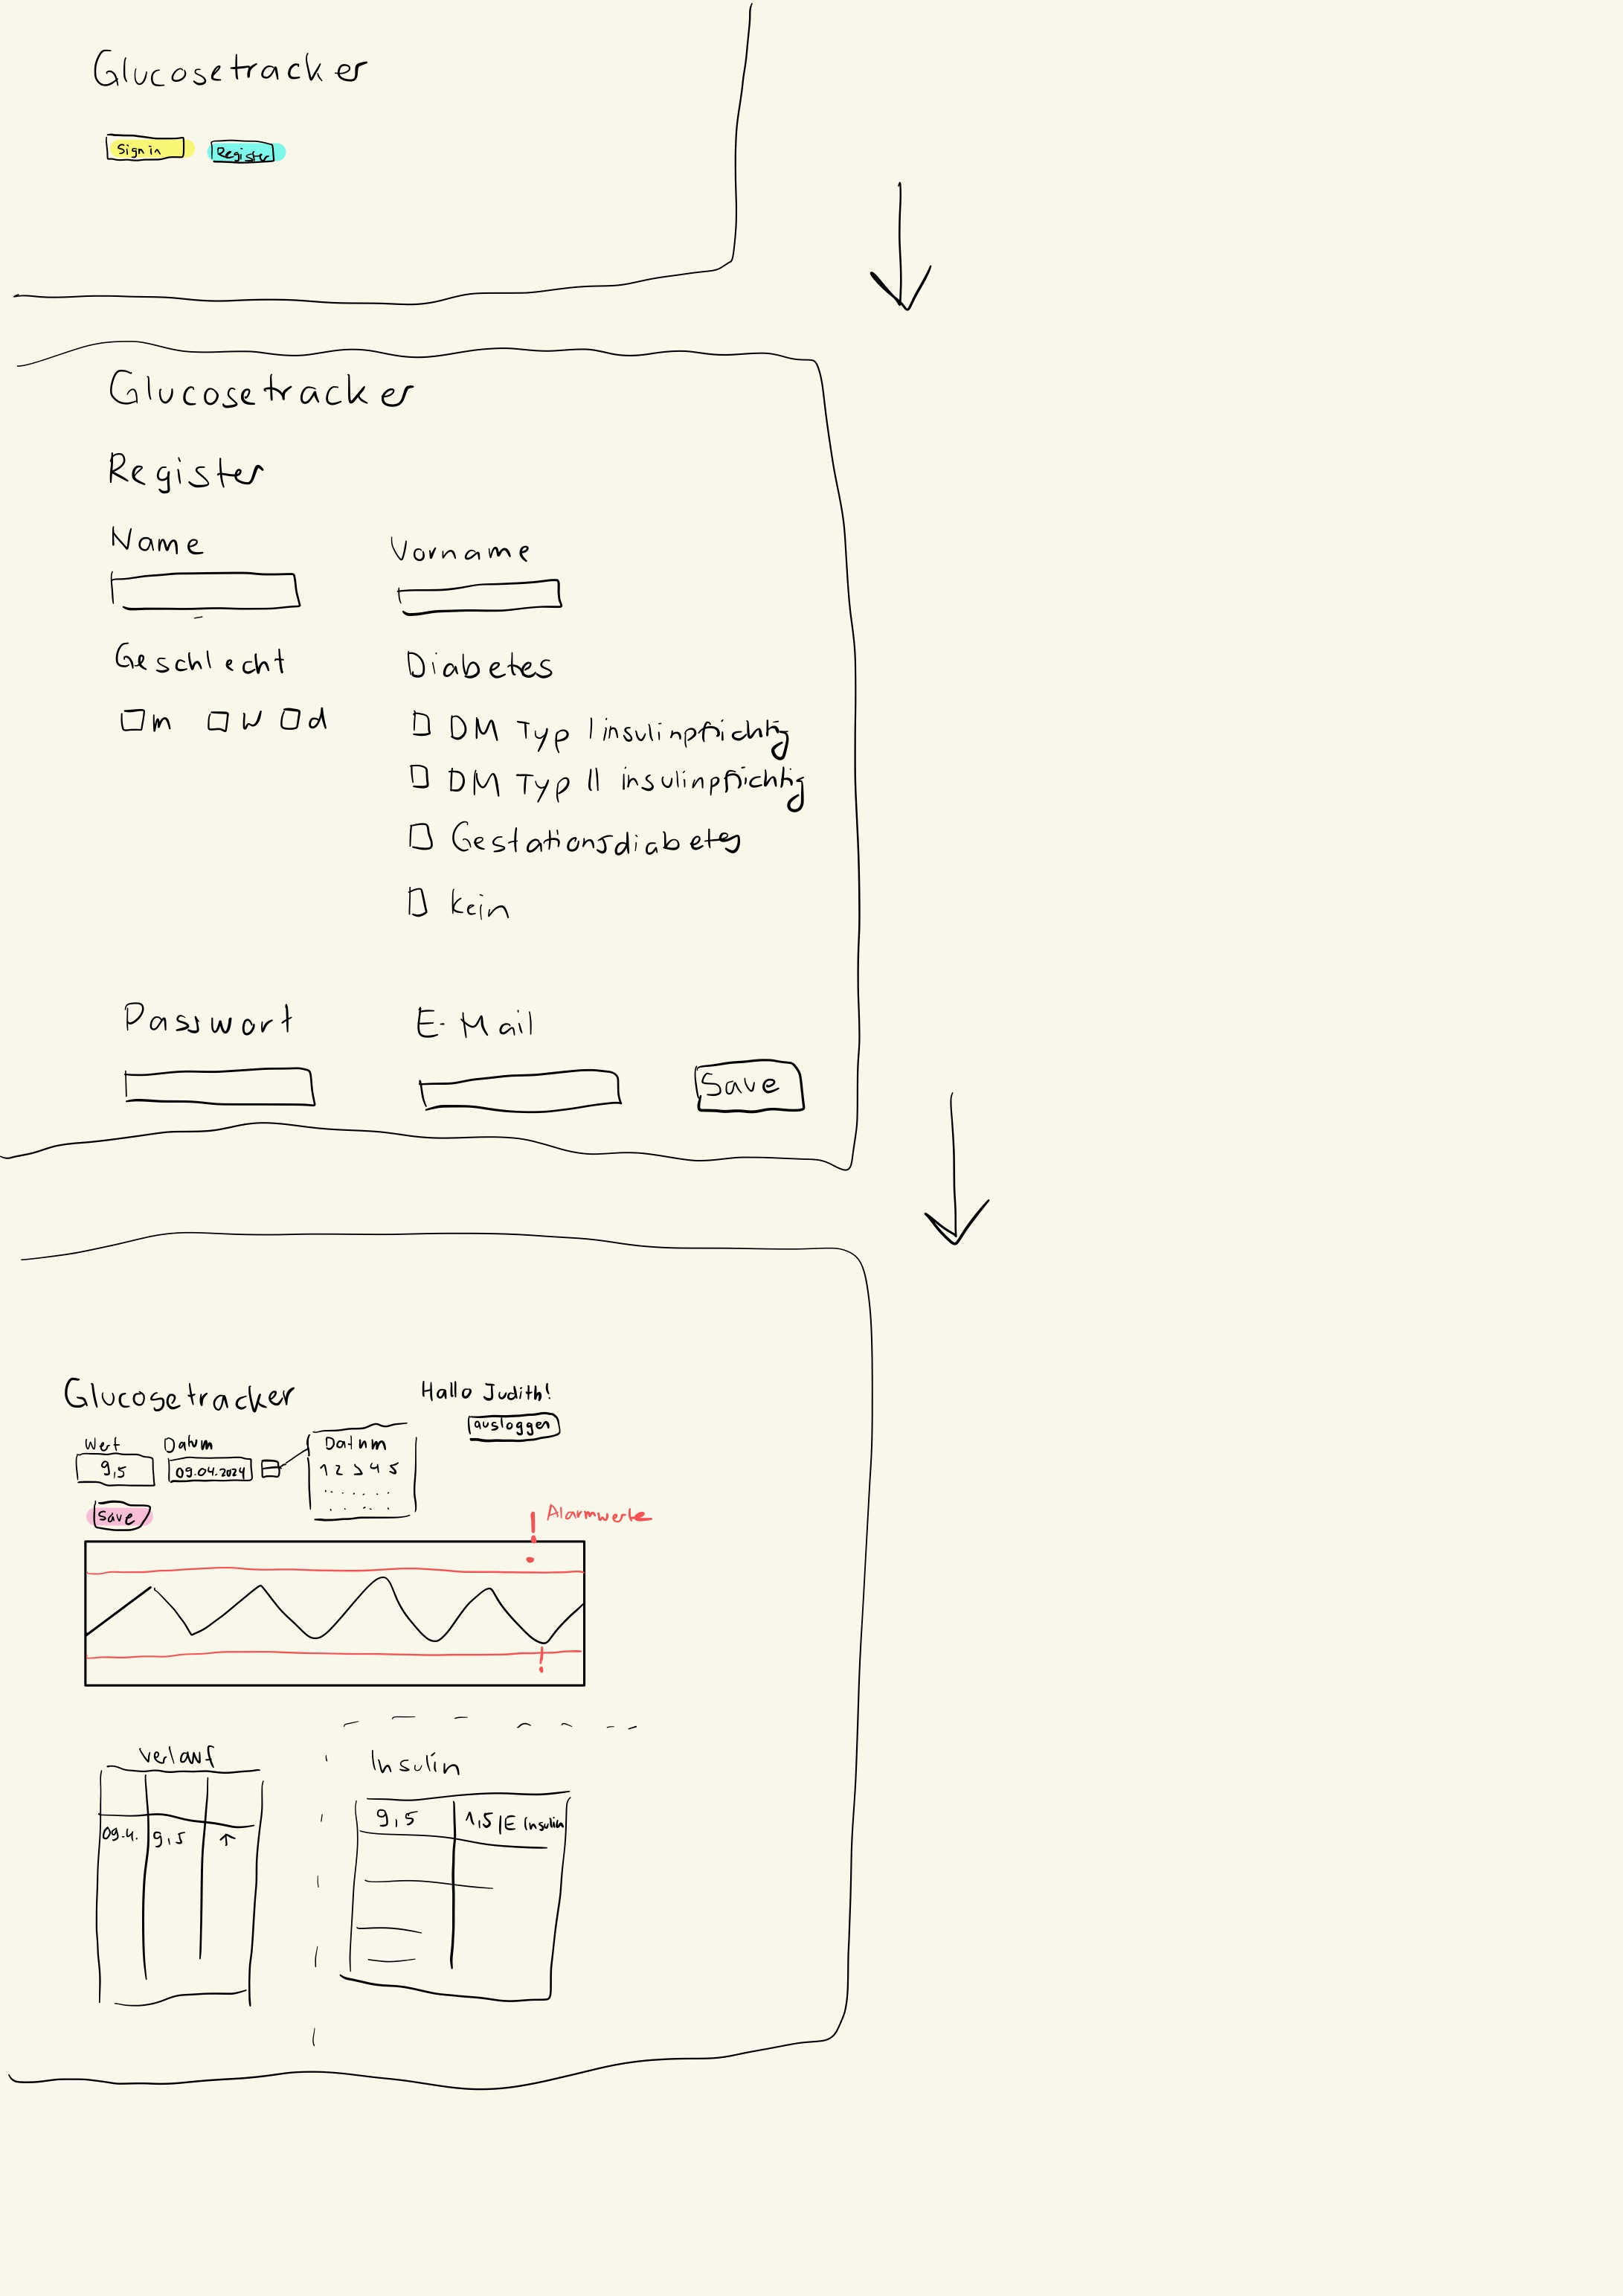 Glucosetracker
Sign in Register
Glucosetracker
Register
Name Vorname
Geschlecht Diabetes
m w d
DM Typ I insulinpflichtig
DM Typ II insulinpflichtig
Gestationsdiabetes
kein
Passwort E-Mail
Save
Glucosetracker Hallo Judith!
ausloggen
Wert Datum Datum
9,5 09.04.2024 1 2 3 4 5
save
! Alarmwerte
!
Verlauf Insulin
9,5 1,5 IE Insulin
09.4. 9,5 ↑